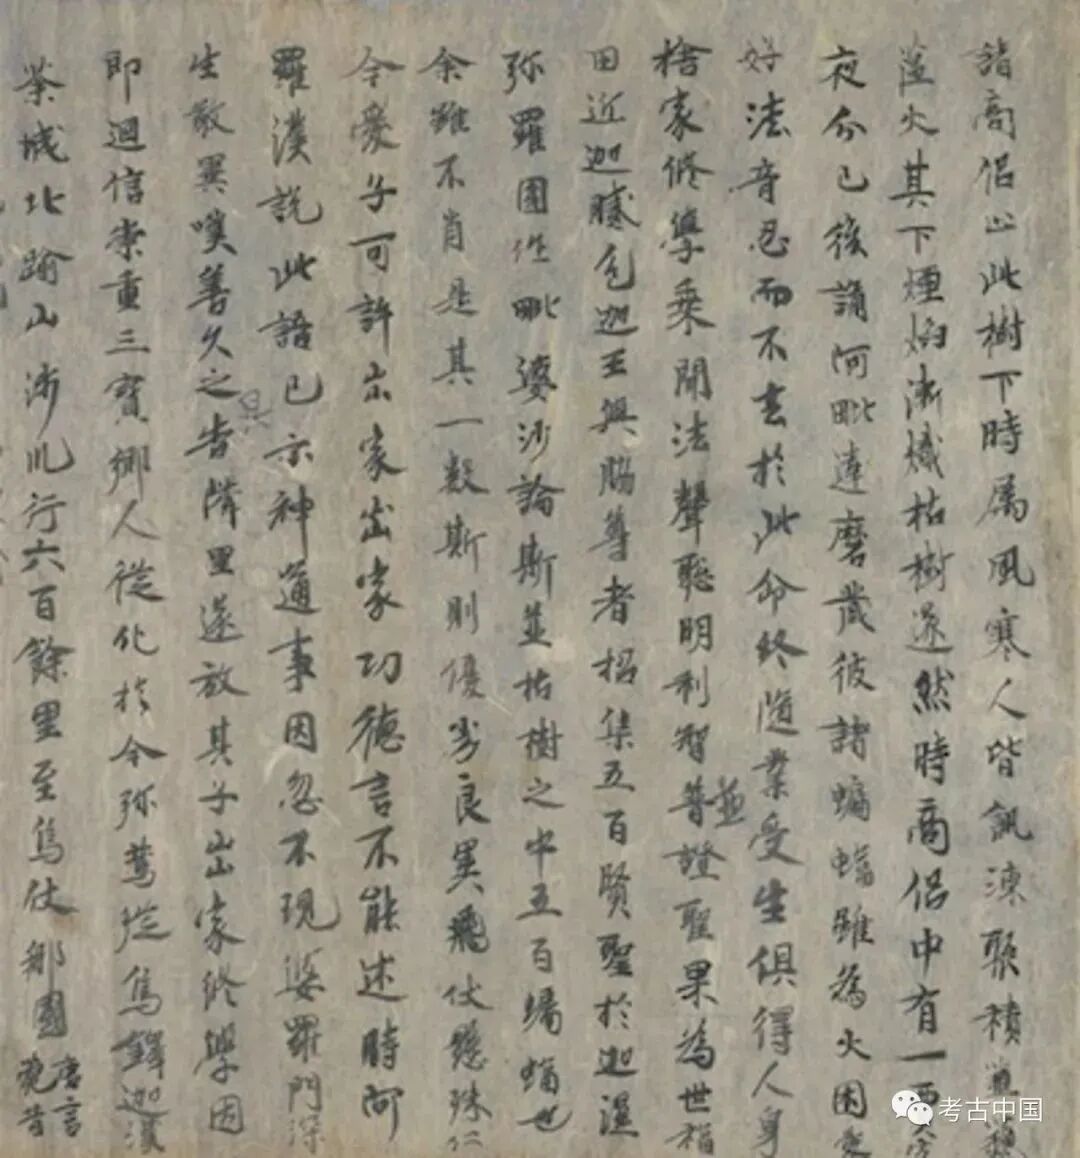 諸商侶止此樹下時属風寒人皆飢凍聚積
藴火其下煙焰漸熾枯樹遂然時商侶中有一
夜分已後誦阿毗達磨蔵彼諸蝙蝠雖為火困
好法音忍而不去於此命終随業受生俱得人身
捨家修學乘聞法聲聡明利智普並證聖果為世福
田近迦膩色迦王與脇尊者招集五百賢聖於迦濕
弥羅國作毗婆沙論斯並枯樹之中五百蝙蝠也
余雖不肖是其一數斯則優劣良異飛伏懸殊仁
今愛子可許出家出家功德言不能述時阿
羅漢說此語已示神通事因忽不現婆羅門深
生敬異嘆善久之具告隣里遂放其子出家終學因
即迴信崇重三寳鄉人從化於今弥篤從烏鐸迦漢
荼城北踰山涉川行六百餘里至烏仗那國唐言
考古中国